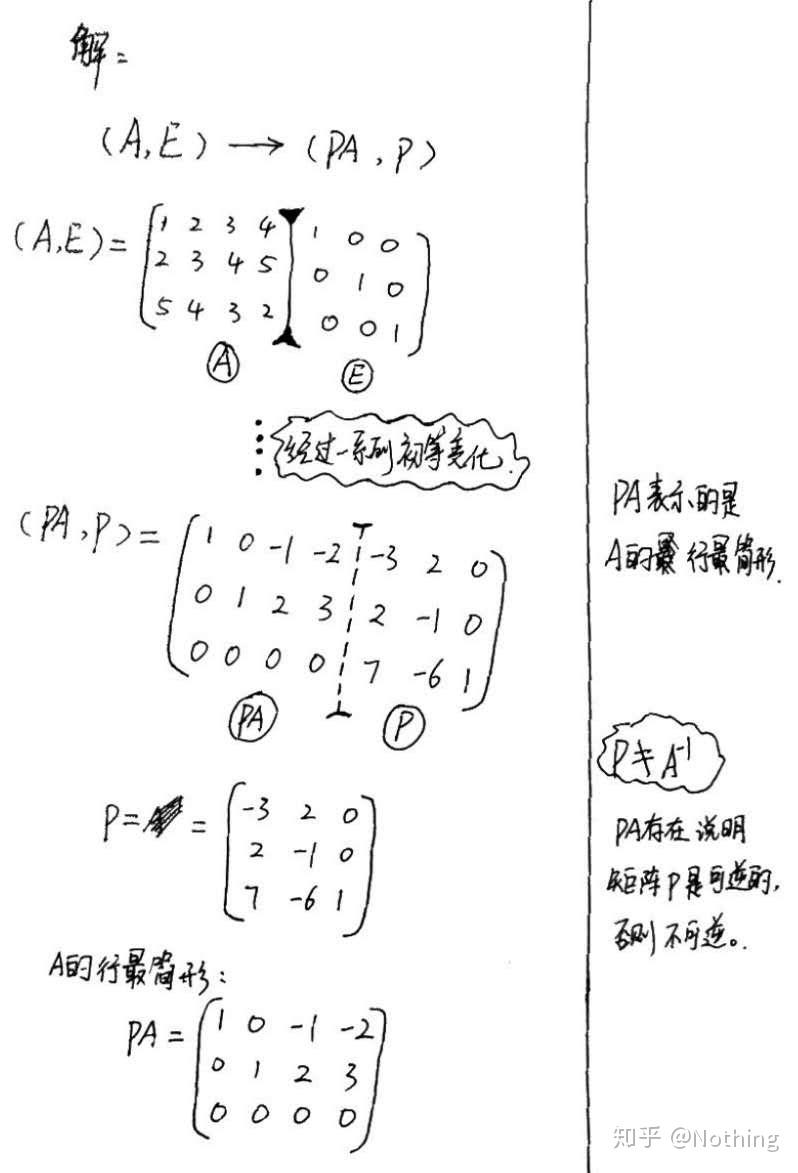 解:
(A,E) → (PA,P)
(A,E)= [1 2 3 4 | 1 0 0
2 3 4 5 | 0 1 0
5 4 3 2 | 0 0 1]
Ⓐ Ⓔ
经过一系列初等变化.
(PA,P)= [1 0 -1 -2 | -3 2 0
0 1 2 3 | 2 -1 0
0 0 0 0 | 7 -6 1]
PA P
P= = [-3 2 0
2 -1 0
7 -6 1]
A的行最简形:
PA= [1 0 -1 -2
0 1 2 3
0 0 0 0]
PA表示的是
A的 行最简形.
P≠A⁻¹
PA存在说明
矩阵P是可逆的,
否则不可逆。
知乎 @Nothing